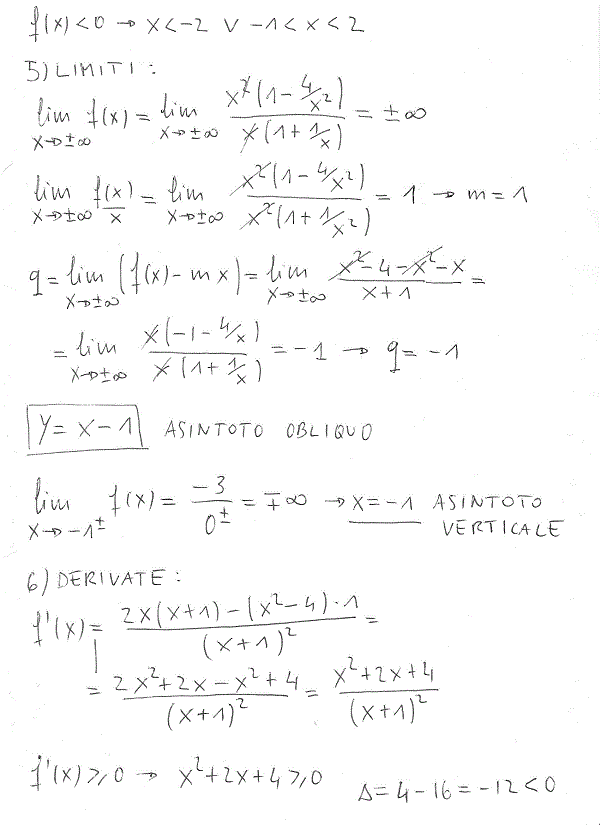 f(x)<0 → x<-2 ∨ -1<x<2
5) LIMITI:
lim x→±∞ f(x) = lim x→±∞ x²(1-4/x²) / x(1+1/x) = ±∞
lim x→±∞ f(x)/x = lim x→±∞ x²(1-4/x²) / x²(1+1/x²) = 1 → m=1
q = lim x→±∞ (f(x)-mx) = lim x→±∞ (x²-4-x²-x) / (x+1) =
= lim x→±∞ x(-1-4/x) / x(1+1/x) = -1 → q=-1
y = x-1 ASINTOTO OBLIQUO
lim x→-1± f(x) = -3/0± = ∓∞ → x=-1 ASINTOTO
VERTICALE
6) DERIVATE:
f'(x) = (2x(x+1)-(x²-4)·1) / (x+1)² =
= (2x²+2x-x²+4) / (x+1)² = (x²+2x+4) / (x+1)²
f'(x)≥0 → x²+2x+4≥0 Δ=4-16=-12<0